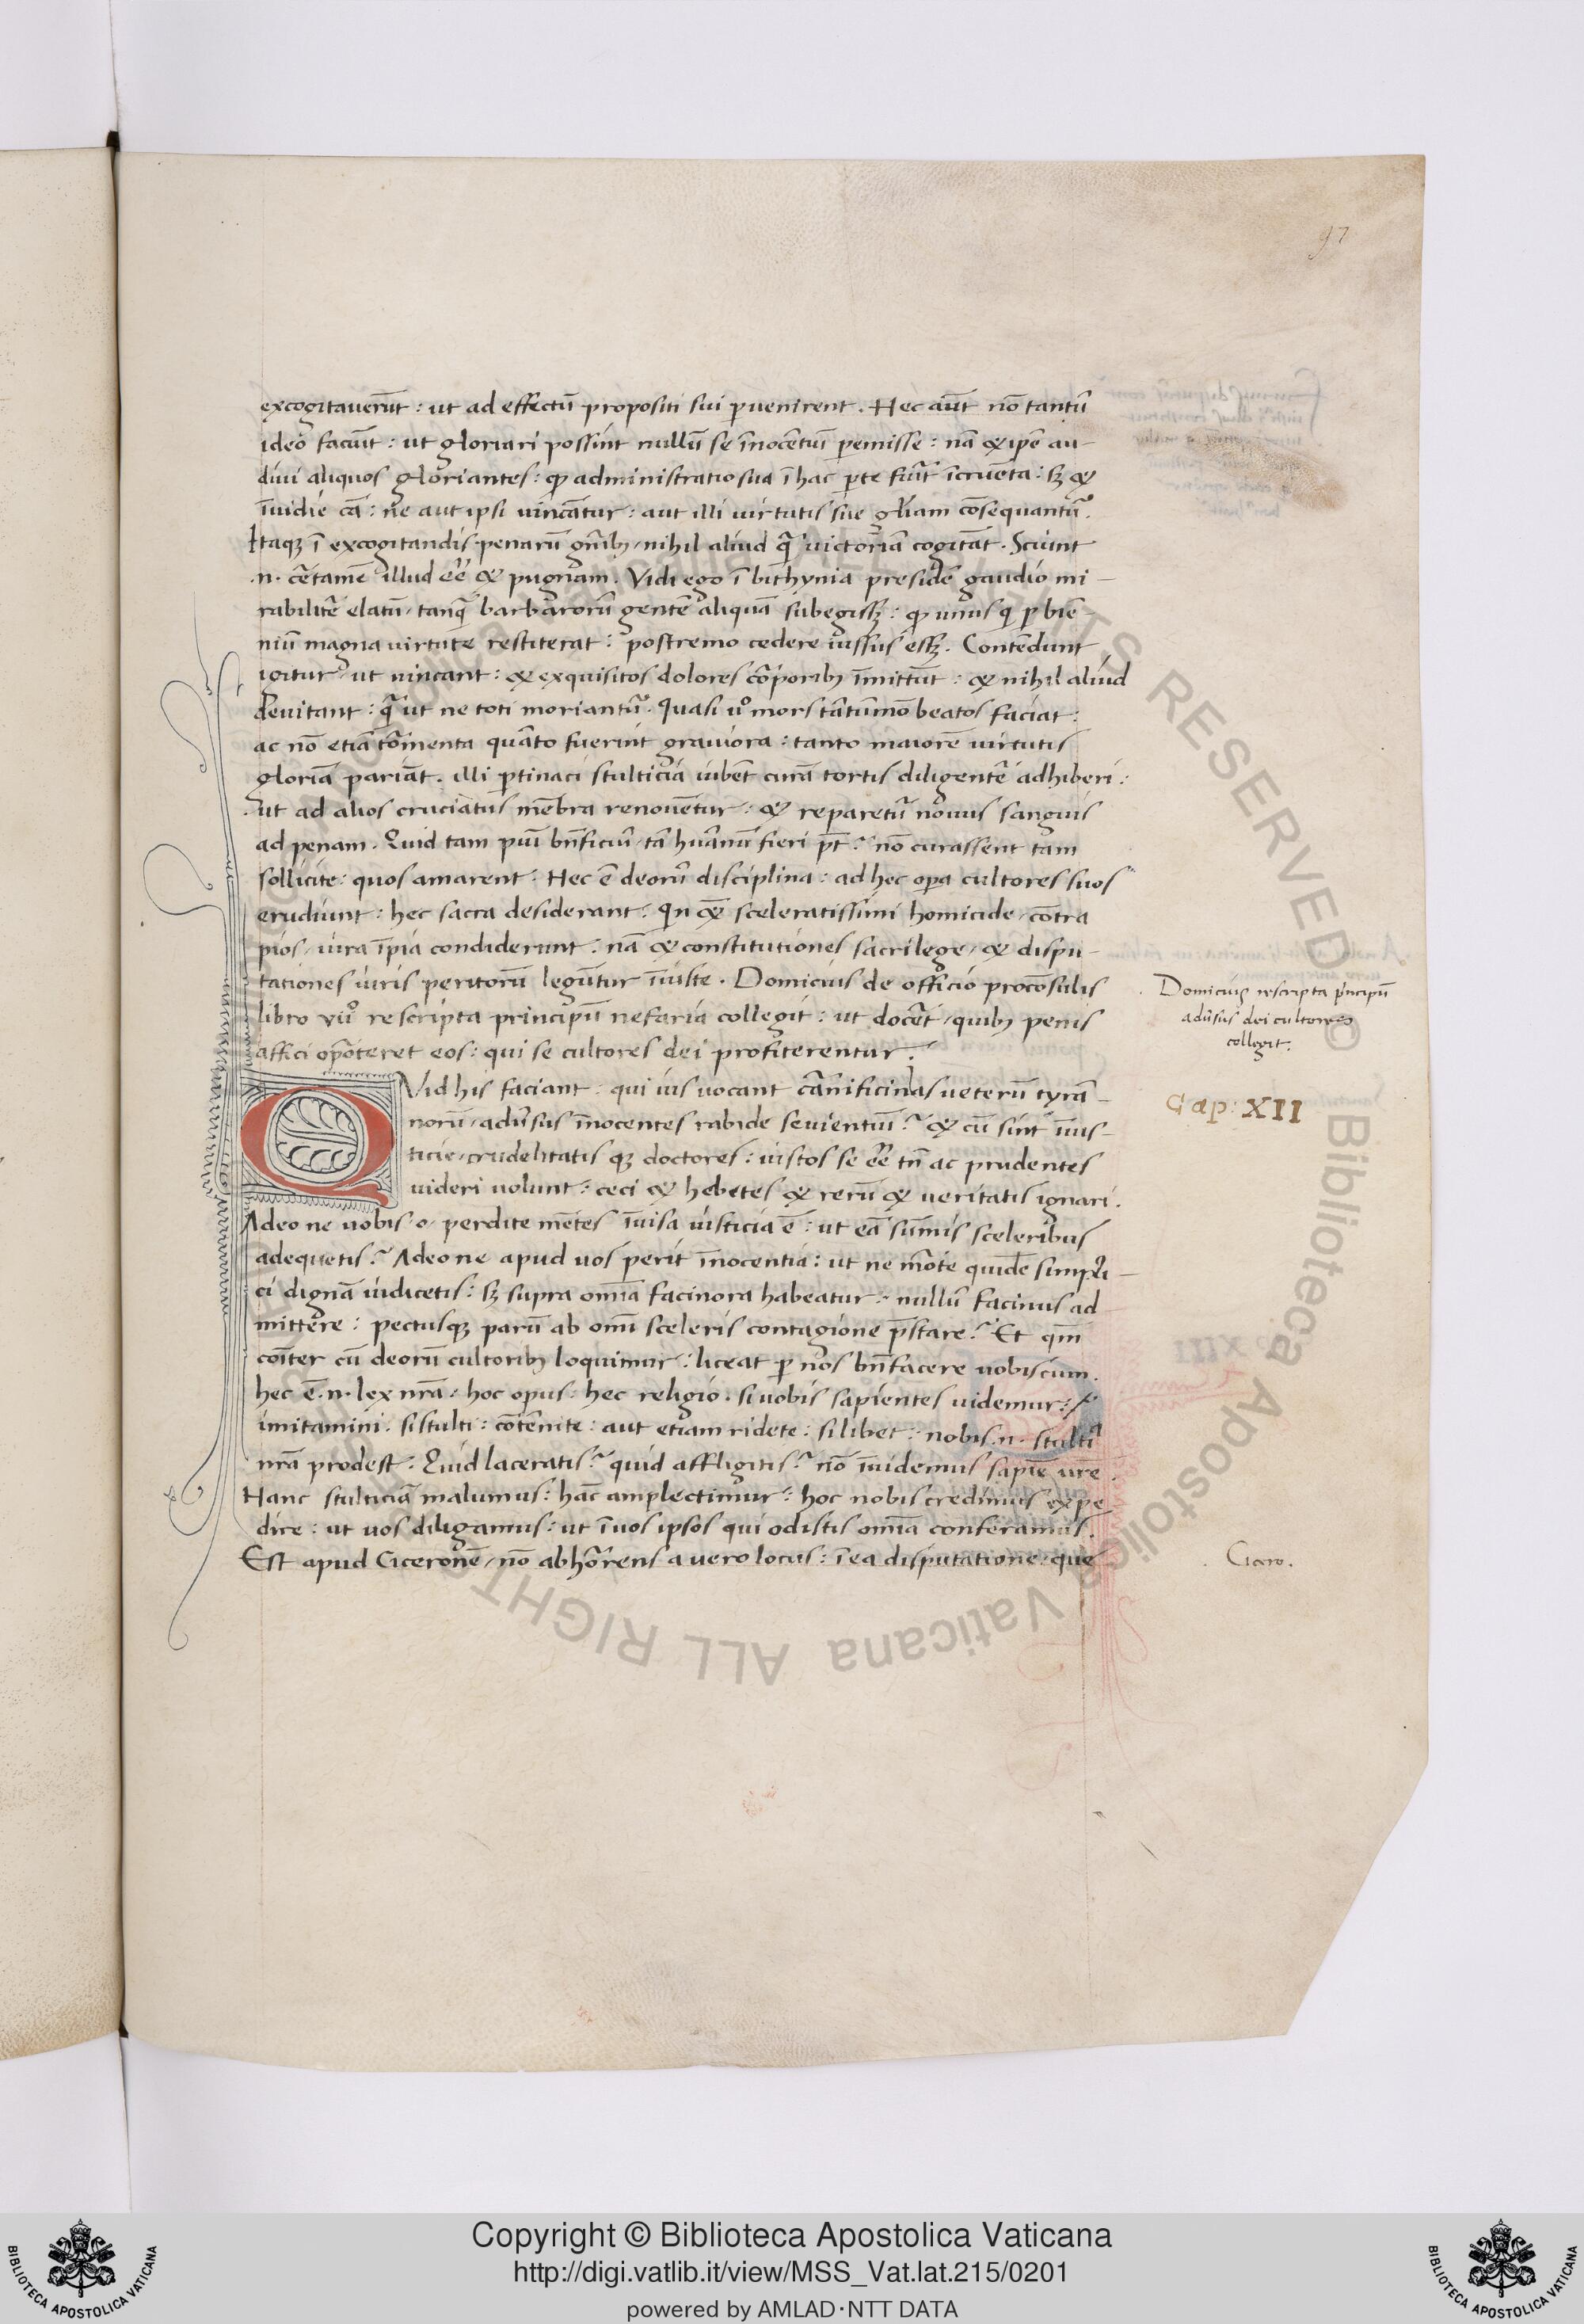 97
excogitauerūt : ut ad effectū propositi sui puenirent . Hec aūt nō tantū
ideo faciūt : ut gloriari possint nullū se īnocētiū pemisse : nā & ipē au-
diui aliquos gloriantes : qᵒ administratio sua ī hac pte fuīt īcruēta : sꝫ &
īuidie cā : ne aut ipsi uincātur : aut illi uirtutis sue gl̄iam cōsequantr̄ .
Itaqꝫ ī excogitandis penarū gn̄ibꝫ / nihil aliud qͣ̄ uictoriā cogitāt . Sciunt
.n. cētamē illud eē & pugnam . Vidi ego ī bithynia presidē gaudio mi-
rabilitē elatū / tanqͣ̄ barbarorū gentē aliquā subegissꝫ : qᵒ unus qi p biē-
niū magna uirtute restiterat : postremo cedere iussus essꝫ . Contēdunt
igitur ut uincant : & exquisitos dolores corporibꝫ īmittūt : & nihil aliud
deuitant : qͣ̄ ut ne toti moriantr̄ . Quasi uͦ mors tātūmō beatos faciat :
ac nō etiā tormenta quāto fuerint grauiora : tanto maiorē uirtutis
gloriā pariāt . illi ptinaci stulticia iubēt curā tortis diligentē adhiberi :
ut ad alios cruciatus mēbra renouētur : & reparetr̄ nouus sanguis
ad penam . Quid tam piū bn̄ficiū / tā huānū fieri pt̄ ? nō curassent tam
sollicite : quos amarent . Hec ē deorū disciplina : ad hec opa cultores suos
erudiunt : hec sacra desiderant . Qn & sceleratissimi homicide / contra
pios / iura īpia condiderunt : nā & constitutiones sacrilege / & dispu-
tationes iuris peritorū legūtur īiuste . Domicius de officio procōsulis
libro viiᵒ rescripta principū nefaria collegit : ut docēt / quibꝫ penis
affici oporteret eos : qui se cultores dei profiterentur .
Domicius rescripta prīncipū
adūsus dei cultores
collegit .
Cap: XII
QVid his faciant : qui ius uocant carnificinas ueterū tyrā-
norū / adūsus īnocentes rabide seuientiū ? & cū sint īius-
ticie / crudelitatis qꝫ doctores : iustos se eē tn̄ ac prudentes
uideri uolunt : ceci & hebetes & rerū & ueritatis ignari .
Adeo ne uobis o / perdite mētes īuisa iusticia ē : ut eā sūmis sceleribus
adequetis ? Adeo ne apud uos perit īnocentia : ut ne morte quidē simpli-
ci dignā iudicetis : sꝫ supra omīa facinora habeatur : nullū facinus ad
mittere : pectusqꝫ parū ab omī sceleris contagione pstare ? Et qm̄
coīter cū deorū cultoribꝫ loquimur : liceat p nos bn̄facere uobiscum .
hec ē .n. lex nrā : hoc opus : hec religio . si uobis sapientes uidemur :
imitamini . si stulti : cōtēnite : aut etiam ridete : si libet : nobis .n. stulti
nrā prodest . Quid laceratis ? quid affligitis ? nō īuidemus sapīe ure .
Hanc stulticiā malumus : hāc amplectimur : hoc nobis credimus expe
dire : ut uos diligamus : ut ī uos ipsos qui odistis omīa conferamus .
Est apud Ciceronē / nō abhorrens a uero locus : ī ea disputatione / que
Cicero .
Copyright © Biblioteca Apostolica Vaticana
http://digi.vatlib.it/view/MSS_Vat.lat.215/0201
powered by AMLAD·NTT DATA